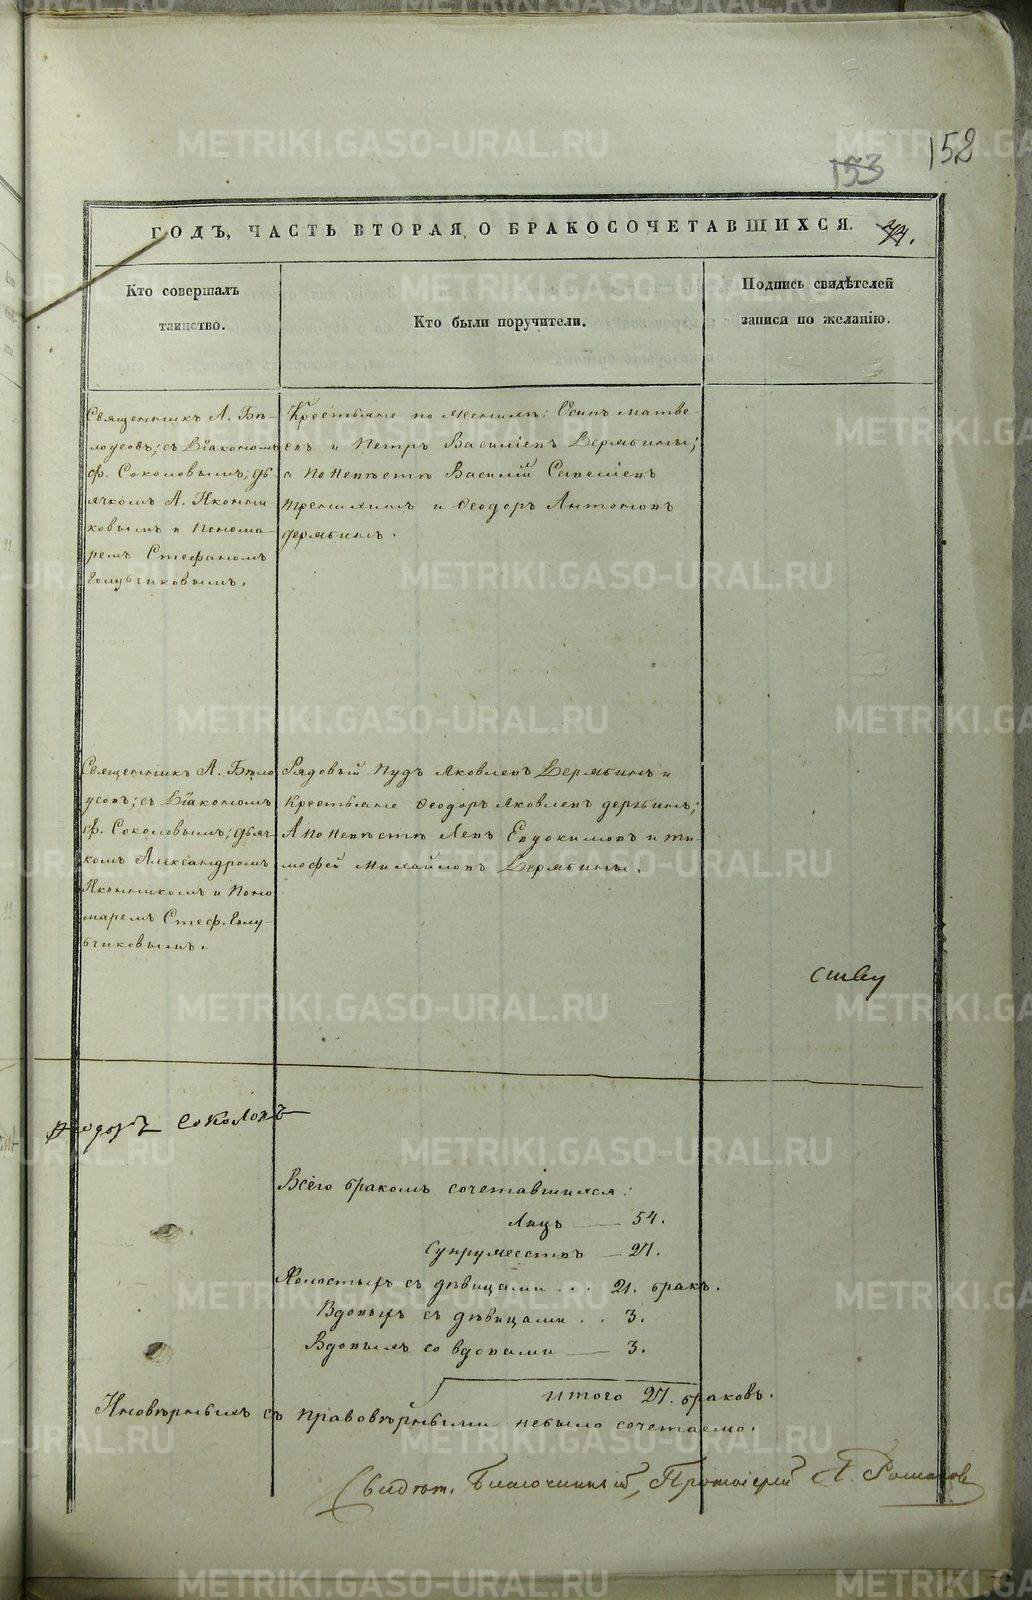 152
153
ГОДЪ, ЧАСТЬ ВТОРАЯ, О БРАКОСОЧЕТАВШИХСЯ.
Кто совершалъ
таинство.
Кто были поручители.
Подпись свидѣтелей
записи по желанію.
Священникъ А. Бѣ-
лоусовъ; съ Діакономъ
Ф. Соколовымъ; дь
ячкомъ А. Иконни
ковымъ и Понома-
ремъ Стефаномъ
Голубчиковымъ.
Крестьяне по женихѣ: Осипъ Матве-
евъ и Петръ Василіевъ Дерябины;
а по невѣстѣ Василій Савеліевъ
и Ѳеодоръ Антоновъ
Дерябинъ.
Священникъ А. Бѣло
усовъ; съ Діакономъ
Ф. Соколовымъ; дьяч-
комъ Александромъ
и Поно
маремъ Стеф. Голу-
бчиковымъ.
Рядовый Пудъ Яковлевъ Дерябинъ и
Крестьяне Ѳеодоръ Яковлевъ Дерябинъ;
А по невѣстѣ Левъ Евдокимовъ и Ти-
мофей Михайловъ Дерябины.
Ѳеодоръ Соколовъ
Всего бракомъ сочетавшихся:
Лицъ — 54.
Супружествъ — 27.
Холостыхъ съ дѣвицами . . . 21. бракъ.
Вдовыхъ съ дѣвицами . . 3.
Вдовыхъ со вдовами — 3.
Итого 27. браковъ.
Иновѣрныхъ съ правовѣрными небыло сочетаемо.
Свидѣт. Благочинный, Протоіерей А. Романовъ
METRIKI.GASO-URAL.RU